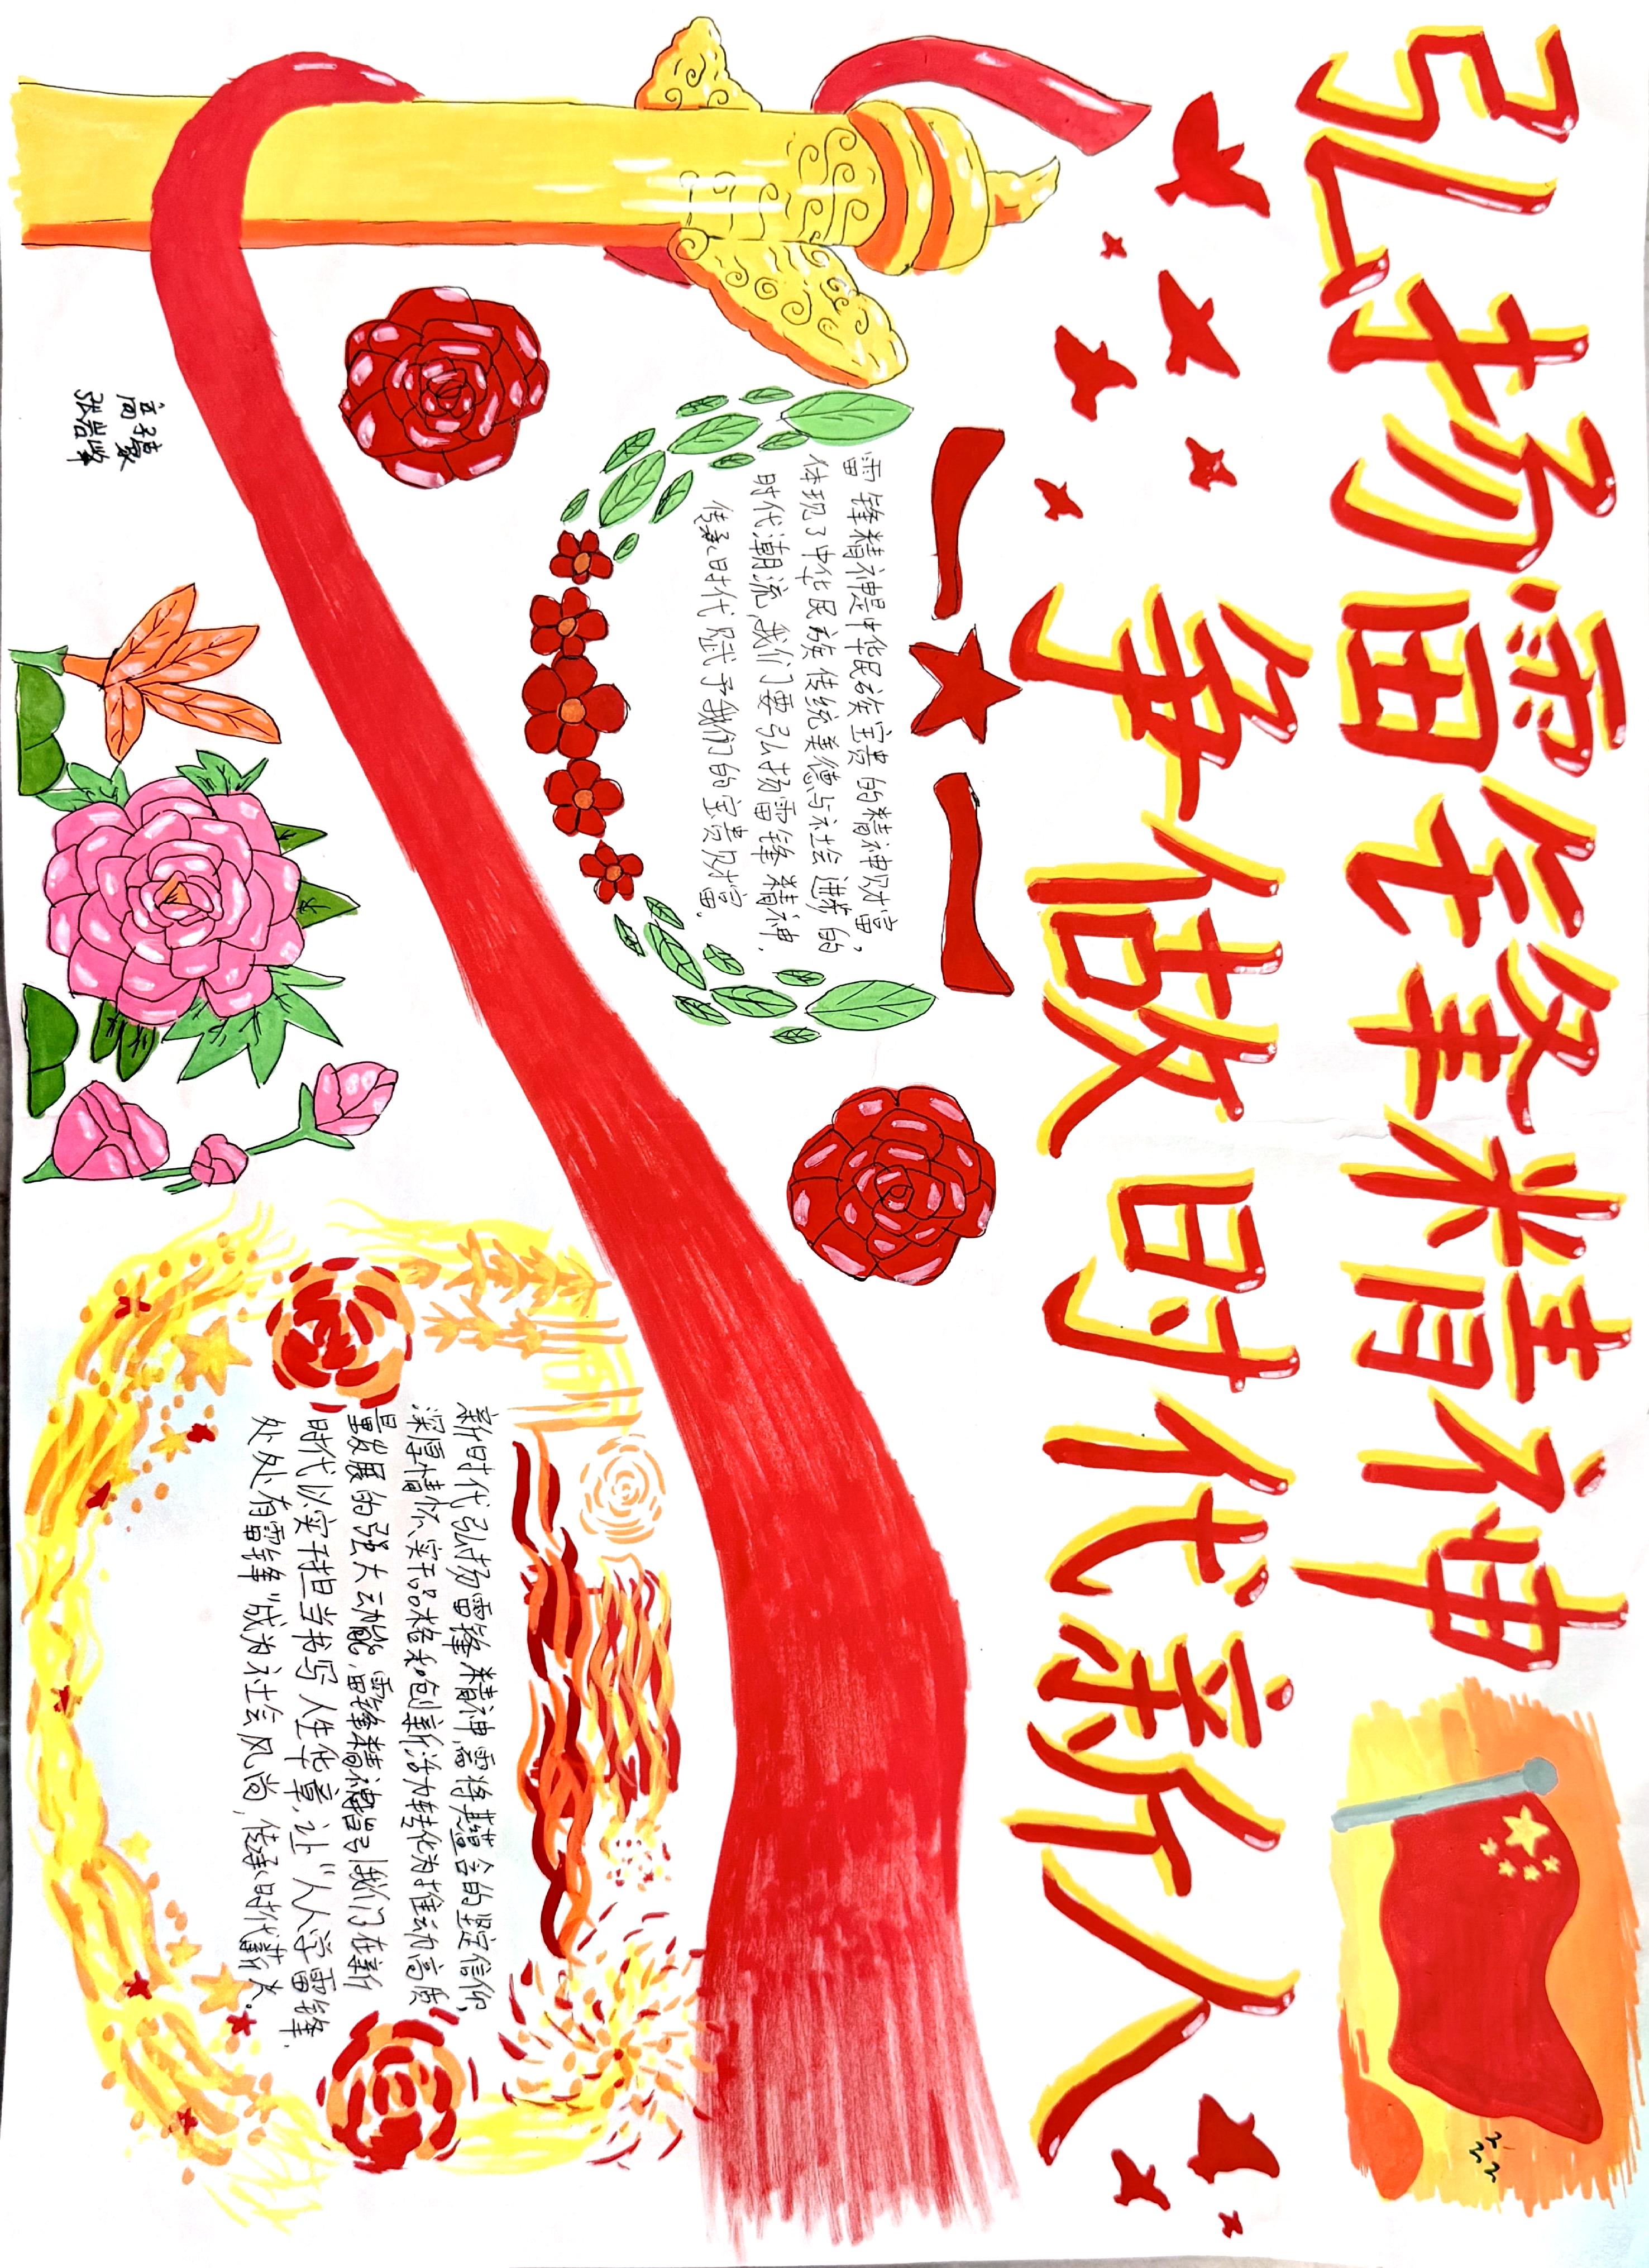 弘扬雷锋精神
争做时代新人
雷锋精神是中华民族宝贵的精神财富,
体现了中华民族传统美德与社会进步的
时代潮流,我们要弘扬雷锋精神,
传承时代赋予我们的宝贵财富.
新时代弘扬雷锋精神,需将其蕴含的坚定信仰,
深厚情怀、实干品格和创新活力转化为推动高质
量发展的强大动能,雷锋精神指引我们在新
时代以实干担当书写人生华章,让“人人学雷锋
处处有雷锋”成为社会风尚,传承时代薪火。